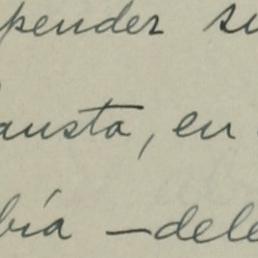 pender su
austa, en
bía —dele